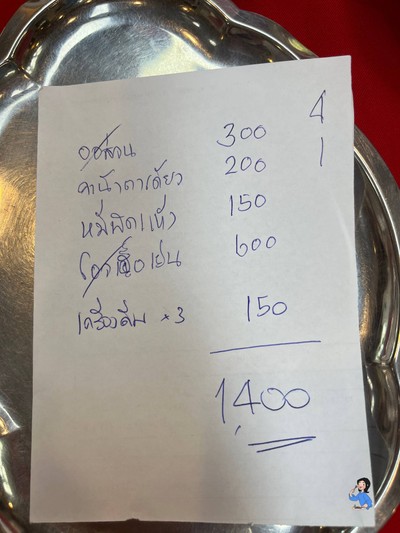 4
ออส่วน 300 1
คาน้ำตาเดียว 200
หมี่ผัดแห้ง 150
600
เครื่องดื่ม × 3 150
1,400